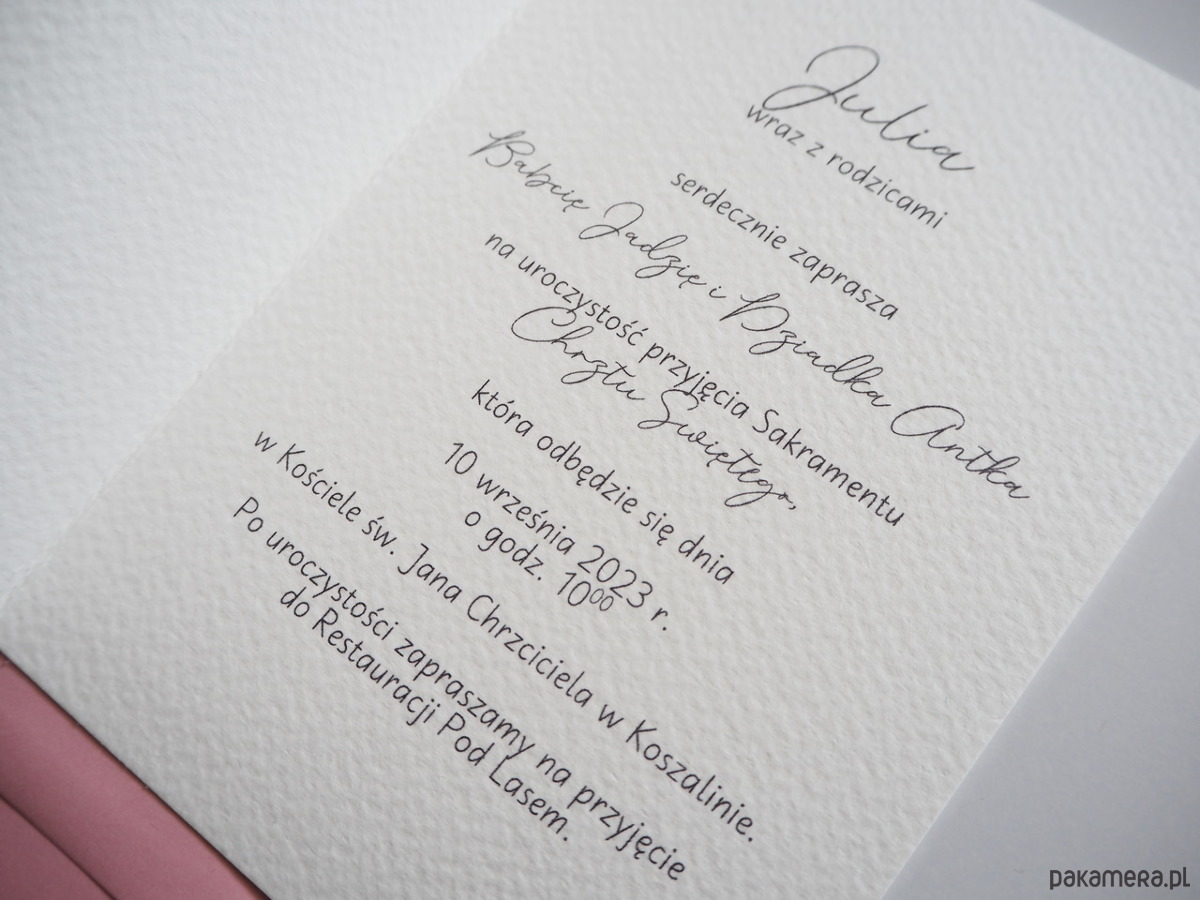 Julia
wraz z rodzicami
serdecznie zaprasza
Babcię Jadzię i Dziadka Antka
na uroczystość przyjęcia Sakramentu
Chrztu Świętego,
która odbędzie się dnia
10 września 2023 r.
o godz. 10⁰⁰
w Kościele św. Jana Chrzciciela w Koszalinie.
Po uroczystości zapraszamy na przyjęcie
do Restauracji Pod Lasem.
pakamera.pl